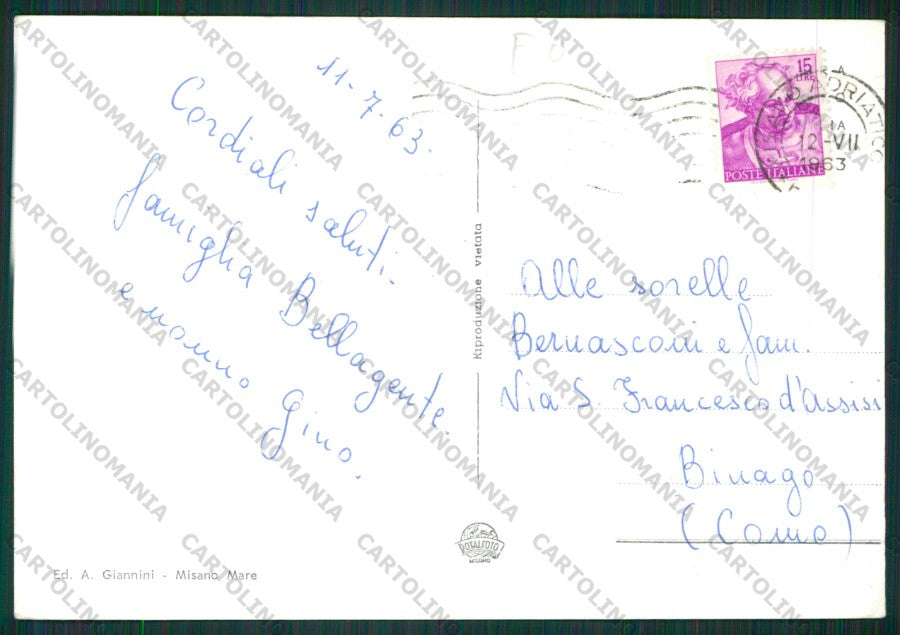 11-7-63.
Cordiali saluti.
famiglia Bellagente
e nonno Gino.
Ed. A. Giannini - Misano Mare
Riproduzione vietata
ROTALFOTO
MILANO
15
LIRE
POSTE ITALIANE
12-VII
1963
Alle sorelle
Bernasconi e fam.
Via S. Francesco d'Assisi
Binago
(Como)
CARTOLINOMANIA